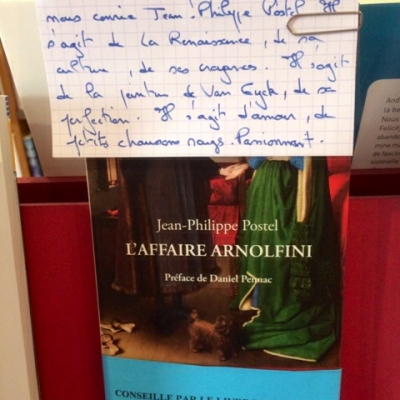 nous convie Jean-Philippe Postel. Il
s'agit de La Renaissance, de sa
culture, de ses croyances. Il s'agit
de la peinture de Van Eyck, de sa
perfection. Il s'agit d'amour, de
petits chaussons rouges. Passionnant.
Jean-Philippe Postel
L'AFFAIRE ARNOLFINI
Préface de Daniel Pennac
CONSEILLÉ PAR LE
And
la ba
Nous
Felicit
aband
mine
de fascin